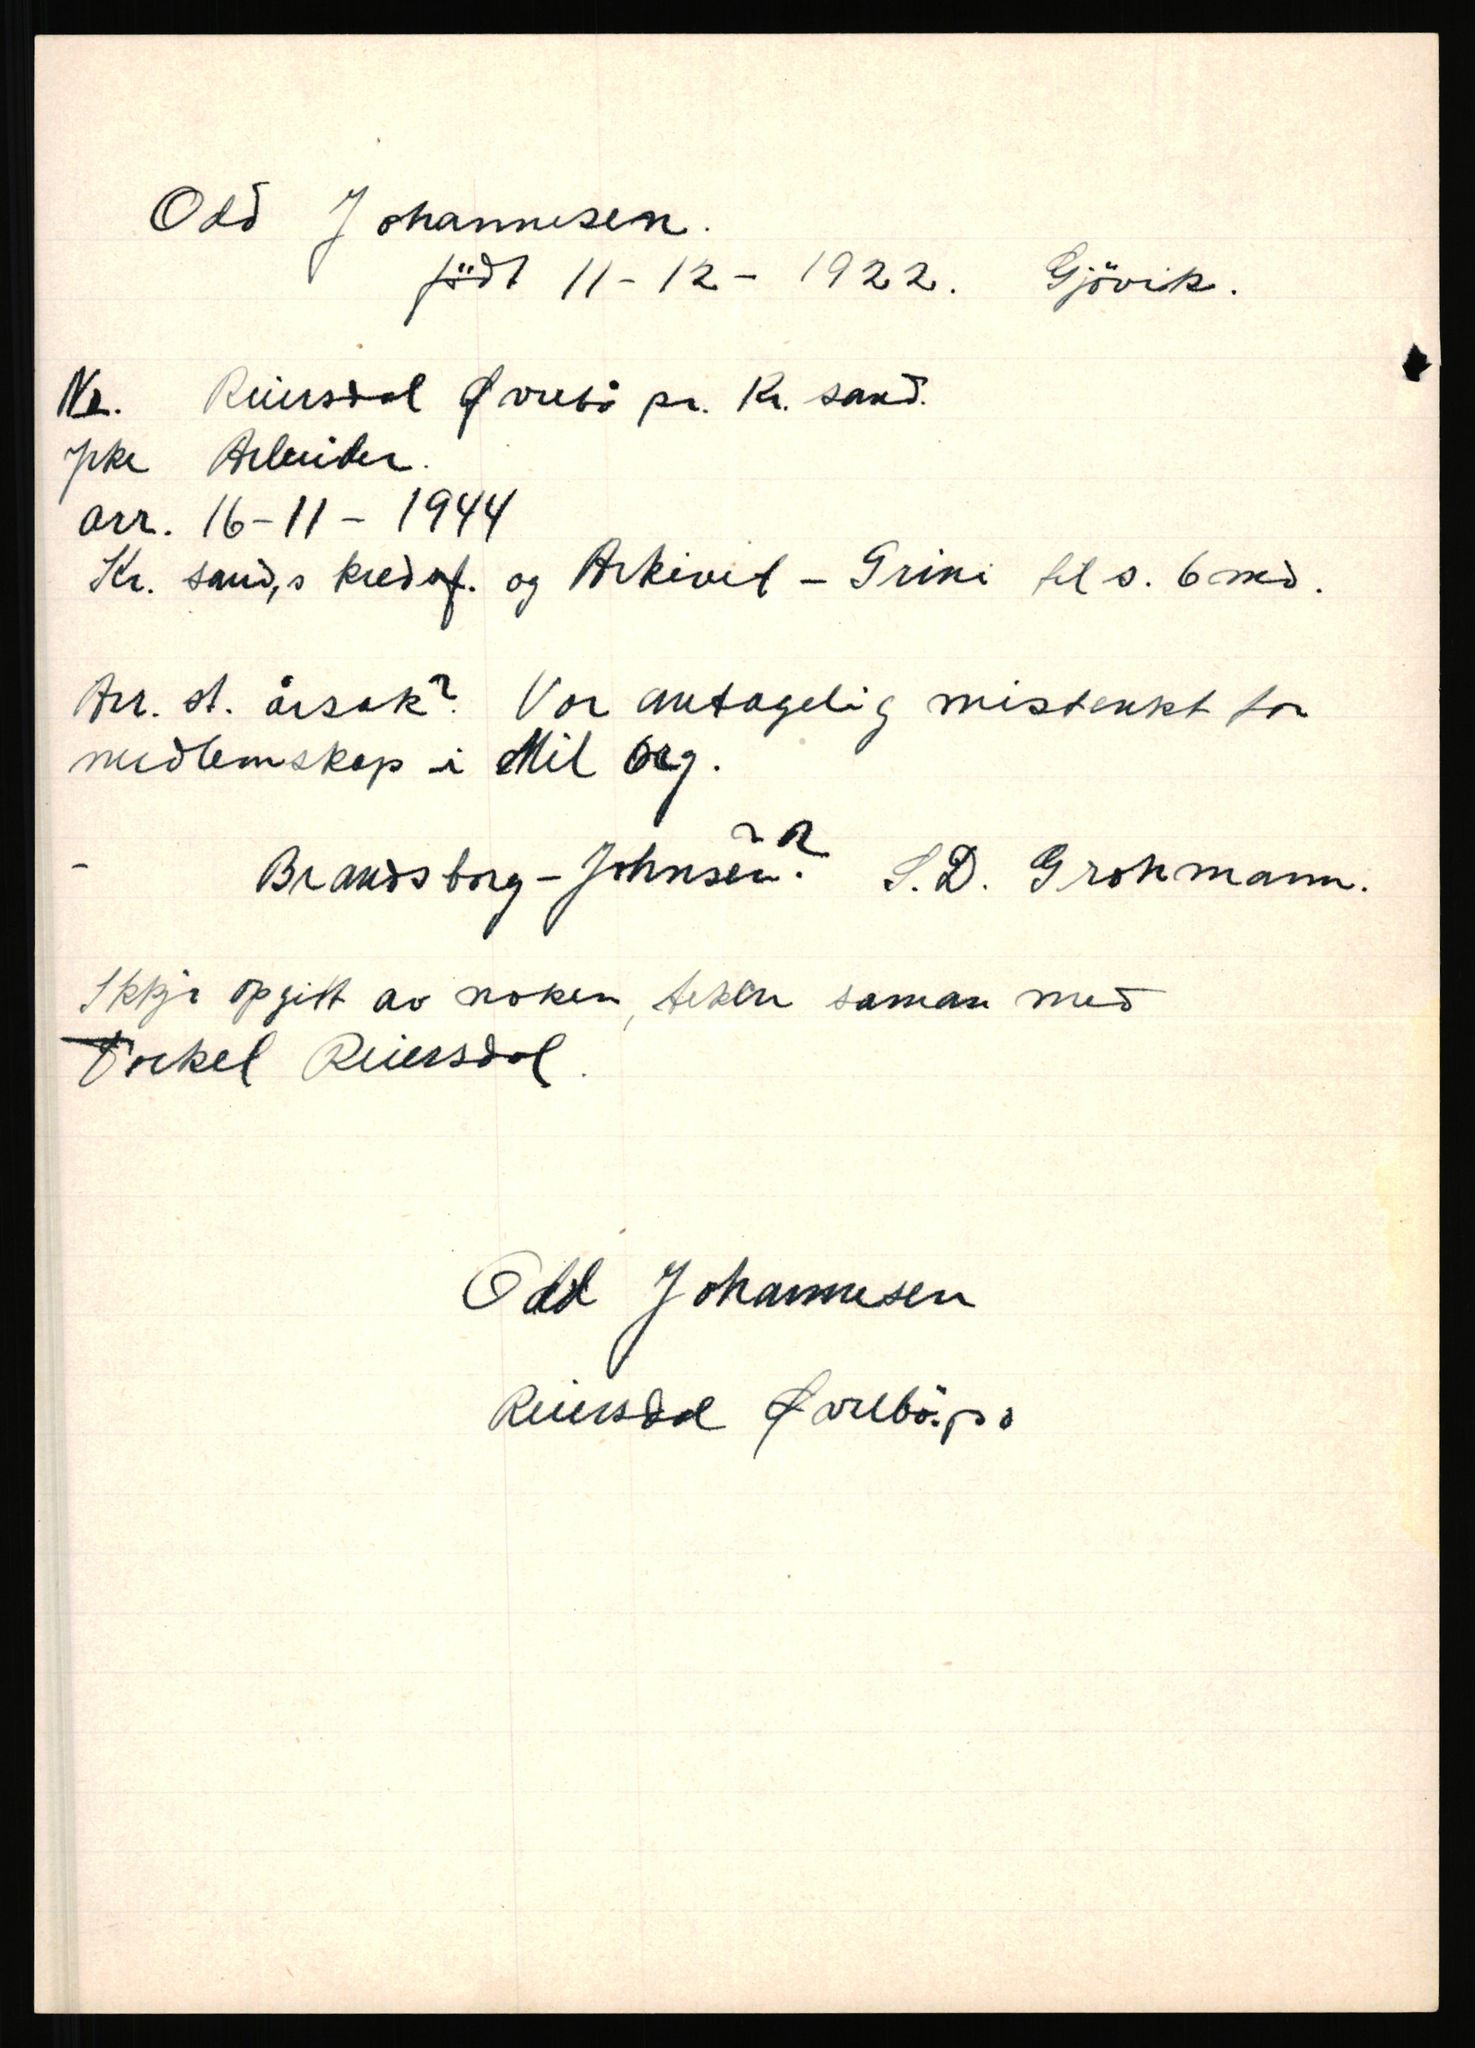 Odd Johannesen.
född 11-12-1922. Gjövik.
Reiersdal Øvrebö pr. Kr. sand.
Yrke Arbeider.
arr. 16-11-1944
Kr. sand,s kredsf. og Arkivet - Grini til s. 6 md.
Arr. st. årsak? Var antagelig mistenkt for
medlemskap i Mil Org.
- Brandsborg - Johnsen? ? S.D. Grohmann.
Ikkje opgitt av noken, teken saman med
Torkel Reiersdal.
Odd Johannesen
Reiersdal Øvrebö. p o